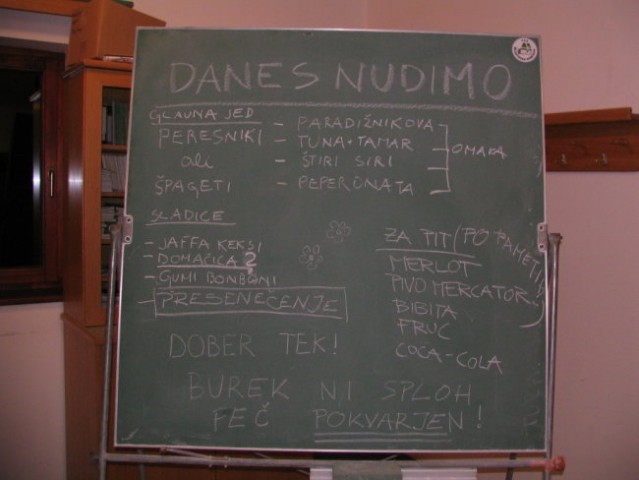 DANES NUDIMO
GLAVNA JED
PERESNIKI
ali
ŠPAGETI
- PARADIŽNIKOVA
- TUNA+TAMAR
- ŠTIRI SIRI
- PEPERONATA
OMAKA
SLADICE
- JAFFA KEKSI
- DOMAČICA 2
- GUMI BONBONI
- PRESENEČENJE
ZA PIT/(PO PAMETI!!)
MERLOT
PIVO MERCATOR
BIBITA
FRUC
COCA-COLA
DOBER TEK!
BUREK NI SPLOH
PEČ POKVARJEN!